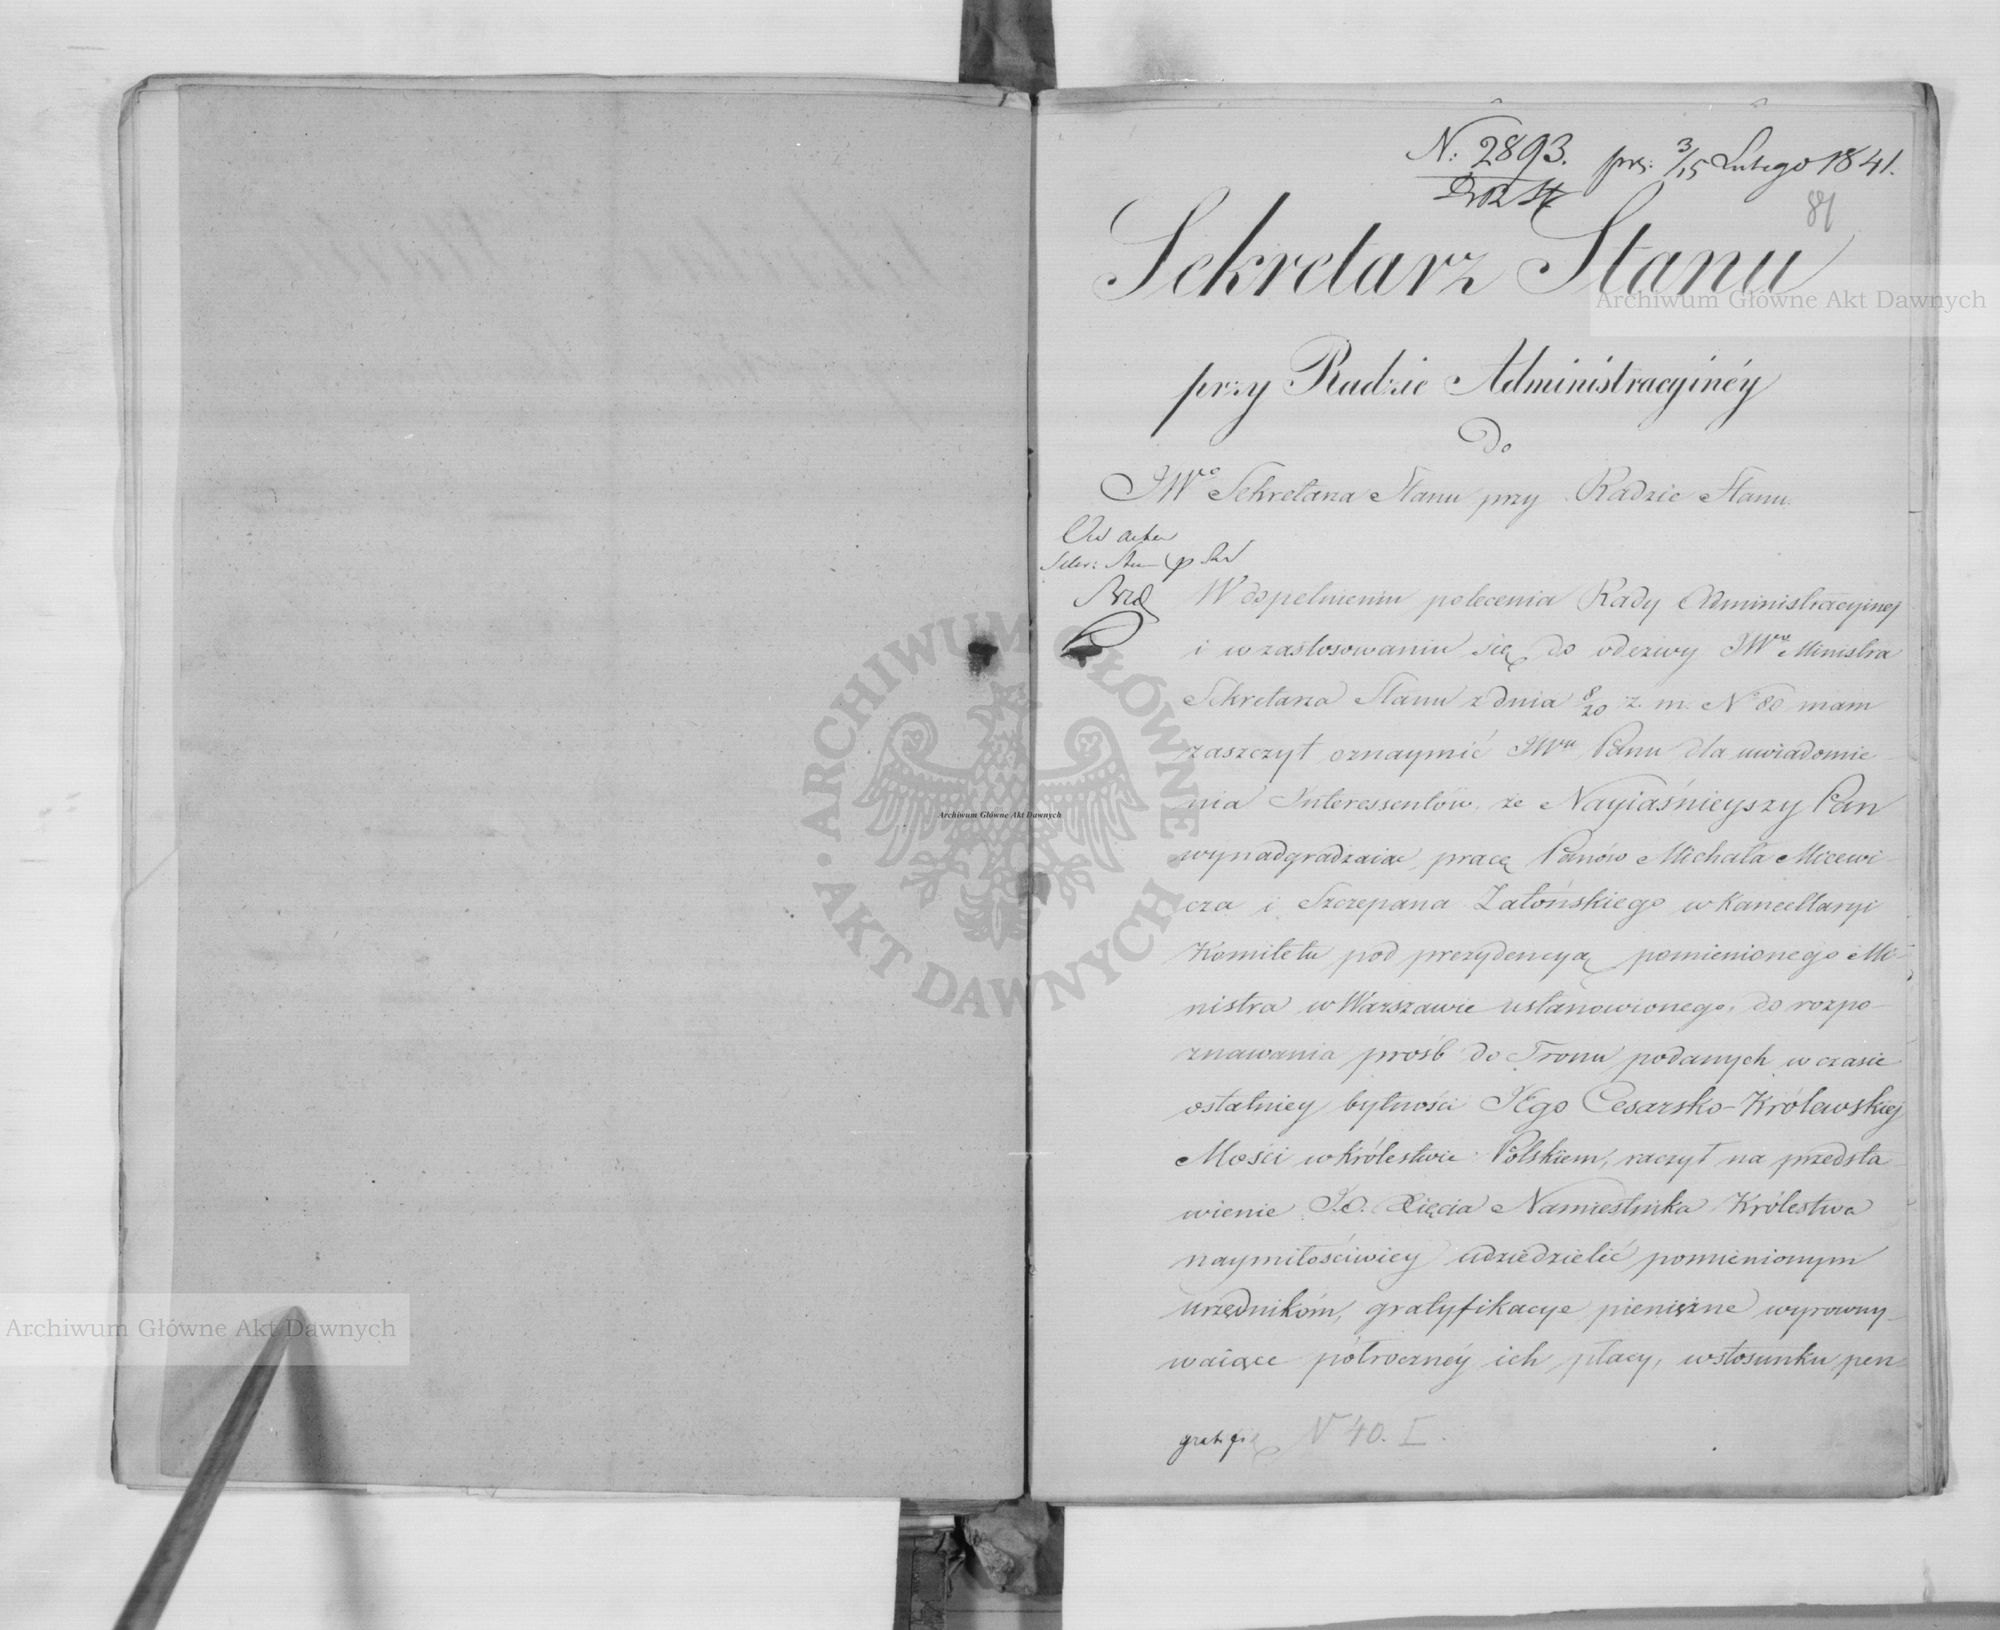 N: 2893. prz: 3/15 Lutego 1841.
81
Sekretarz Stanu
przy Radzie Administracyinéy
do
JWgo Sekretarza Stanu przy Radzie Stanu.
W dopełnieniu polecenia Rady Administracyinej
i w zastosowaniu się do odezwy JWgo Ministra
Sekretarza Stanu z dnia 8/20 z. m. N 80 mam
zaszczyt oznaymić JWu Panu dla uwiadomie-
nia Interessentów, że Nayiaśnieyszy Pan
wynadgradzaiąc pracę Panów Michała Micewi-
cza i Szczepana Zatońskiego w Kancellaryi
Komitetu pod prezydencyą pomienionego Mi-
nistra w Warszawie ustanowionego, do rozpo-
znawania prośb do Tronu podanych w czasie
ostatniey bytności Jego Cesarsko-Królewskiej
Mości w Królestwie Polskiem, raczył na przedsta-
wienie J.O. Xięcia Namiestnika Królestwa
naymiłościwiey udziedzielić pomienionym
urzędnikóm, gratyfikacye pieniężne wyrowny-
waiące półrocznéy ich płacy, w stosunku pen-
N 40. I.
Archiwum Główne Akt Dawnych
Archiwum Główne Akt Dawnych
Archiwum Główne Akt Dawnych
ARCHIWUM GŁÓWNE AKT DAWNYCH